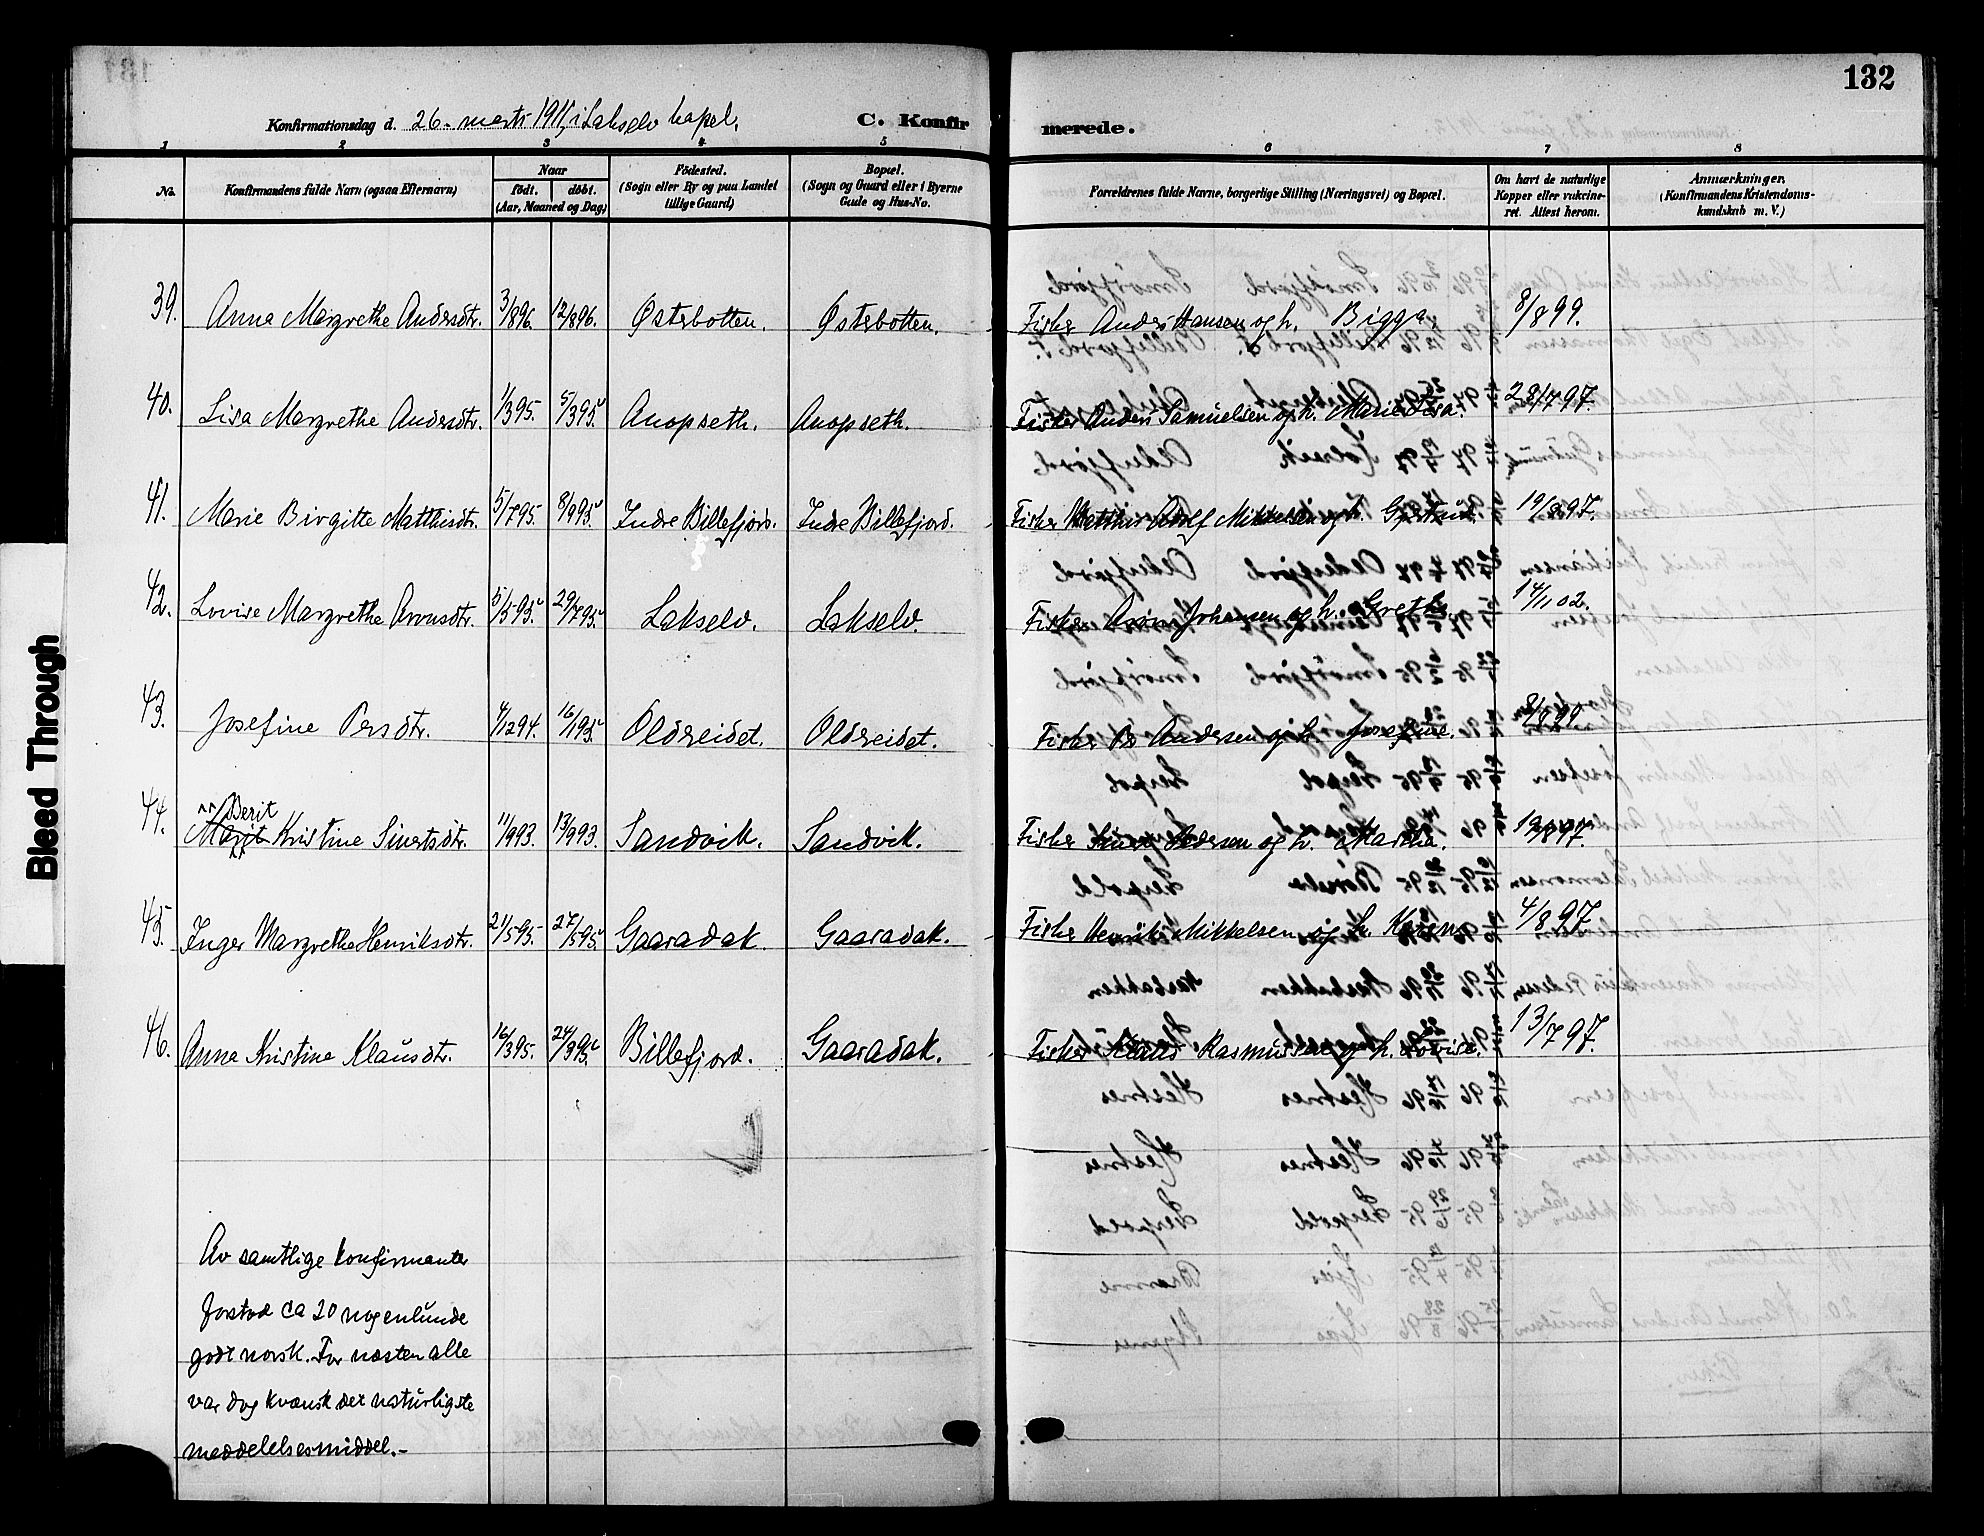 132
Konfirmationsdag d. 26. marts 1911 i Lakselv kapel. C. Konfirmerede.
1 2 3 4 5 6 7 8
No. Konfirmandens fulde Navn (ogsaa Efternavn) Naar født. døbt. (Aar, Maaned og Dag) Fødested. (Sogn eller By og paa Landet tillige Gaard) Bopæl. (Sogn og Gaard eller i Byerne Gade og Hus-No. Forældrenes fulde Navne, borgerlige Stilling (Næringsvei) og Bopæl. Om havt de naturlige Kopper eller vakcineret. Attest herom. Anmærkninger, (Konfirmandens Kristendomskundskab m. V.)
39. Anna Margrethe Andersdtr. 3/896. 12/896. Østerbotten. Østerbotten. Fisker Anders Hansen og h. Bigga 8/899.
40. Lisa Margrethe Andersdtr. 1/395. 5/395. Anopseth. Anopseth. Fisker Anders Samuelsen og h. Marie Lisa. 28/797.
41. Marie Birgitte Matthisdtr. 5/795. 8/995. Indre Billefjord. Indre Billefjord. Fisker Matthis Adolf Mikkelsen og h. 19/897.
42. Lovise Margrethe Aronsdtr. 5/595. 29/795. Lakselv. Lakselv. Fisker Aron Johansen og h. Grethe 14/1102.
43. Josefine Persdtr. 4/1294. 16/195. Oldereidet. Oldereidet. Fisker Per Andersen og h. Josefine. 8/899.
44. Berit Marit Kristine Sivertsdtr. 11/993. 13/993. Sandvik. Sandvik. Fisker Sivert Pedersen og h. Martha. 19/897.
45. Inger Margrethe Henriksdtr. 21/595. 27/595. Gaaradak Gaaradak. Fisker Henrik Mikkelsen og h. Karen 4/897.
46. Anna Kristine Klausdtr. 16/395. 24/395. Billefjord. Gaaradak. Fisker Klaus Rasmussen og h. Lovise. 13/797.
Av samtlige konfirmanter
forstod ca 20 nogenlunde
godt norsk. For næsten alle
var dog kvænsk det naturligste
meddelelsesmiddel.-
Bleed Through